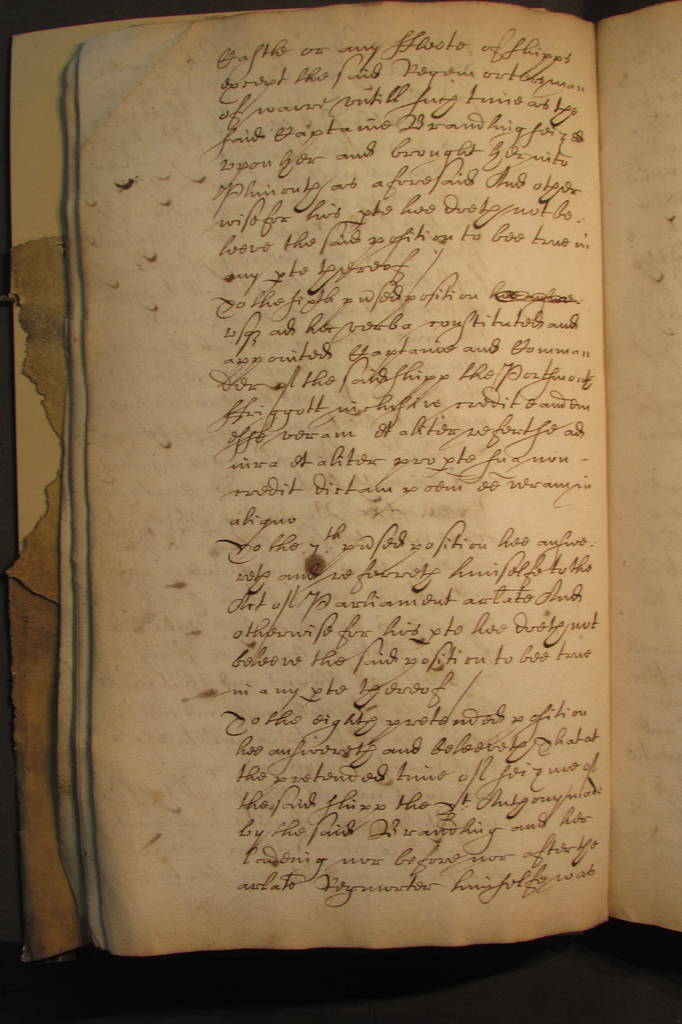 Castle or any ffleete of shipps
except the said Regemorter man
of warre untill such time as the
said Captaine Brandling seized
upon her and brought her into
Plimouth as aforesaid And other
wise for his pte hee doeth not be:
leeve the said position to bee true in
any pte thereof /
To the sixth prsed position
usq ad hec verba constituted and
appointed Captaine and Comman
der of the said shipp the Portmouth
ffriggott inclusive credit eandem
esse veram et aliter refert se ad
iura et aliter pro pte sua non
credit dictam poem ee veram in
aliquo
To the 7th prsed position hee answe:
reth and referreth himselfe to the
Act of Parliament arlate And
otherwise for his pte hee doeth not
beleeve the said position to bee true
in any pte thereof /
To the eighth pretended position
hee answereth and beleeveth That at
the pretended time of seizure of
the said shipp the St. Anthony made
by the said Brandling and her
ladeing nor before nor after the
arlate Regmorter himselfe was